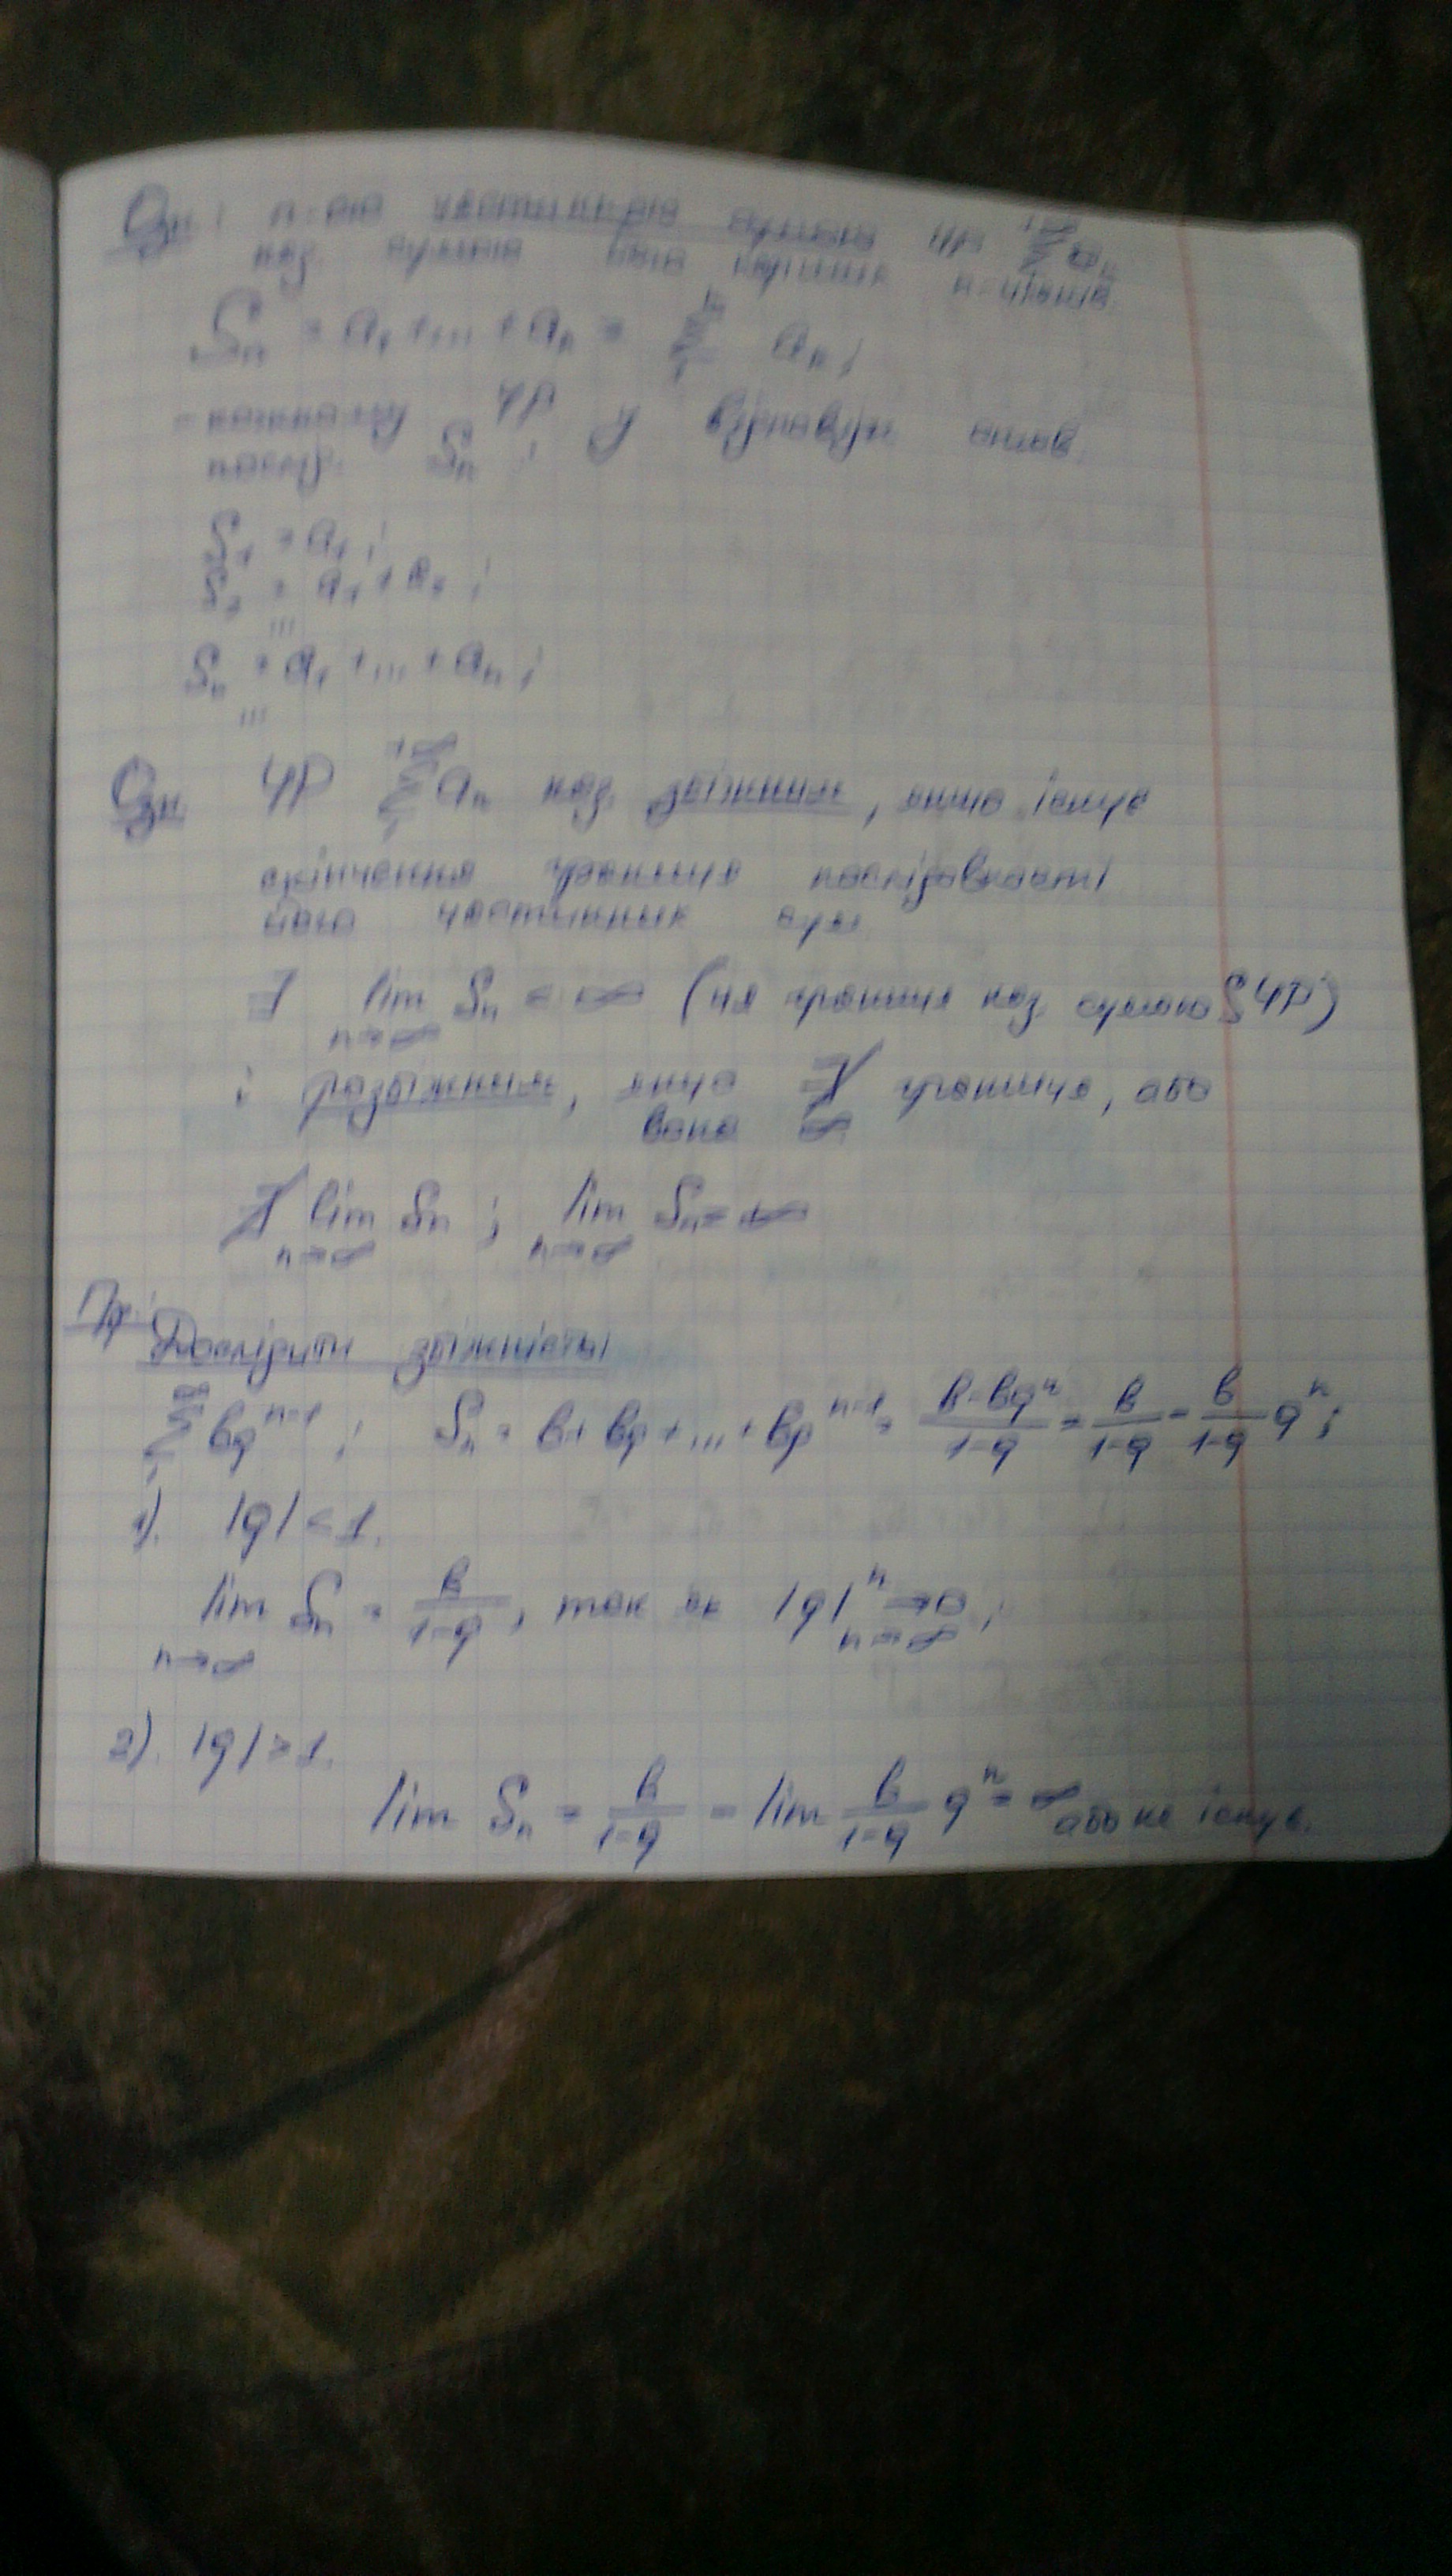 Озн: n-ою частинною сумою ЧР
наз. сума його перших n-членів.
Sₙ = a₁ + ... + aₙ = Σ aₙ;
- кожному ЧР у відповідн
послід. Sₙ;
S₁ = a₁;
S₂ = a₁ + a₂;
...
Sₙ = a₁ + ... + aₙ;
...
Озн ЧР Σ aₙ наз. збіжним, якщо існує
скінченна границя послідовності
його частинних сум
∃ lim Sₙ < ∞ (ця границя наз. сумою S ЧР)
n→∞
і розбіжним, якщо ∄ границя, або
вона ∞
∄ lim Sₙ; lim Sₙ = ∞
n→∞ n→∞
Пр:
Дослідити збіжність
Σ bqⁿ⁻¹; Sₙ = b + bq + ... + bqⁿ⁻¹ = (b - bqⁿ)/(1-q) = b/(1-q) - b/(1-q) qⁿ;
1). |q| < 1.
lim Sₙ = b/(1-q), так як |q|ⁿ → 0;
n→∞ n→∞
2). |q| > 1.
lim Sₙ = b/(1-q) - lim b/(1-q) qⁿ = ∞ або не існує.